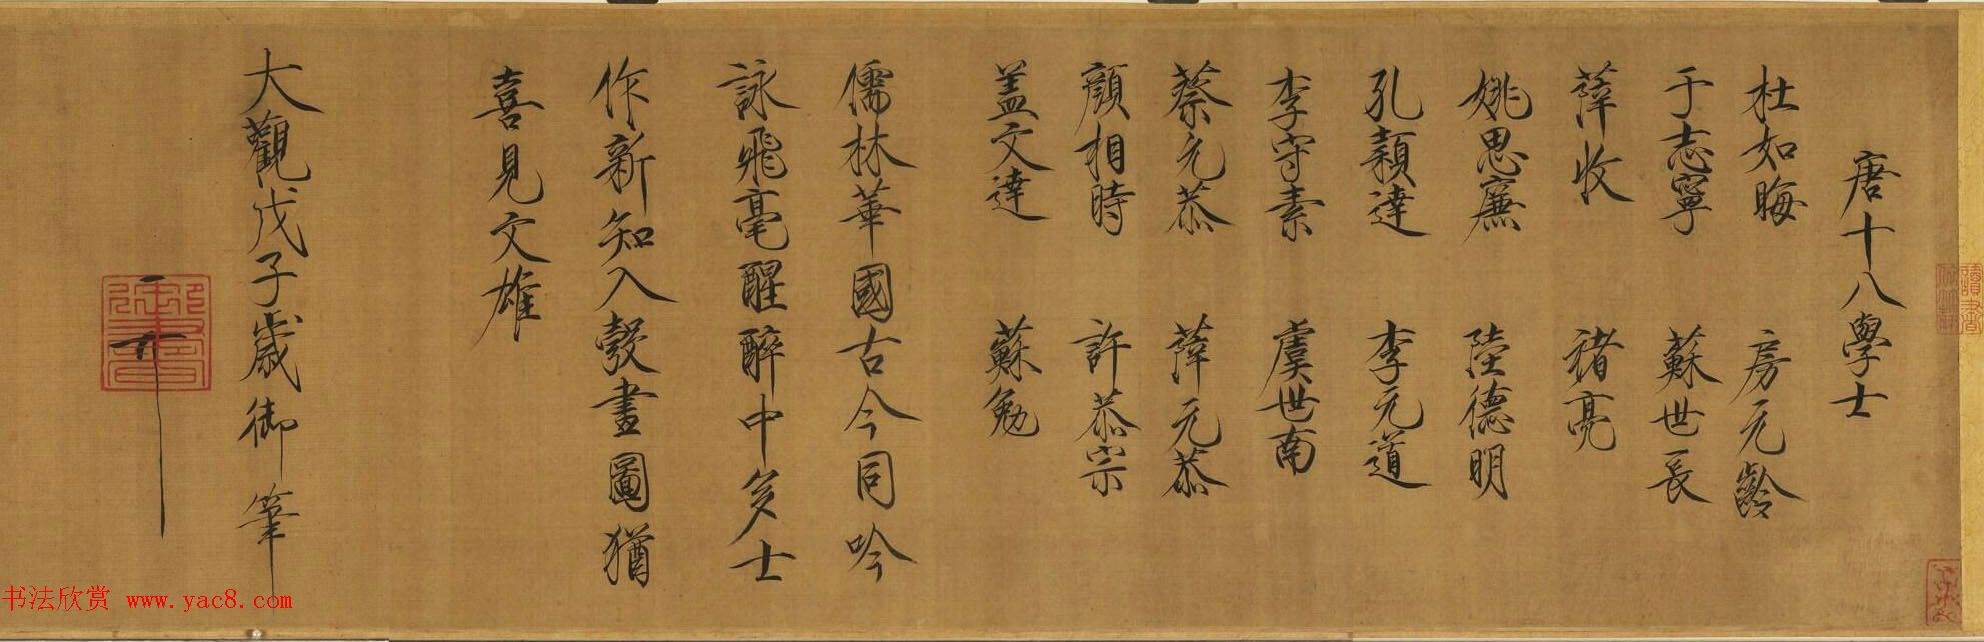 唐十八學士
杜如晦 房元齡
于志寧 蘇世長
薛收 褚亮
姚思廉 陸德明
孔穎達 李元道
李守素 虞世南
蔡元恭 薛元恭
顏相時 許恭宗
盖文達 蘇勉
儒林華國古今同吟
詠飛毫醒醉中多士
作新知入彀畫圖猶
喜見文雄
大觀戊子歲御筆
御書
书法欣赏 www.yac8.com